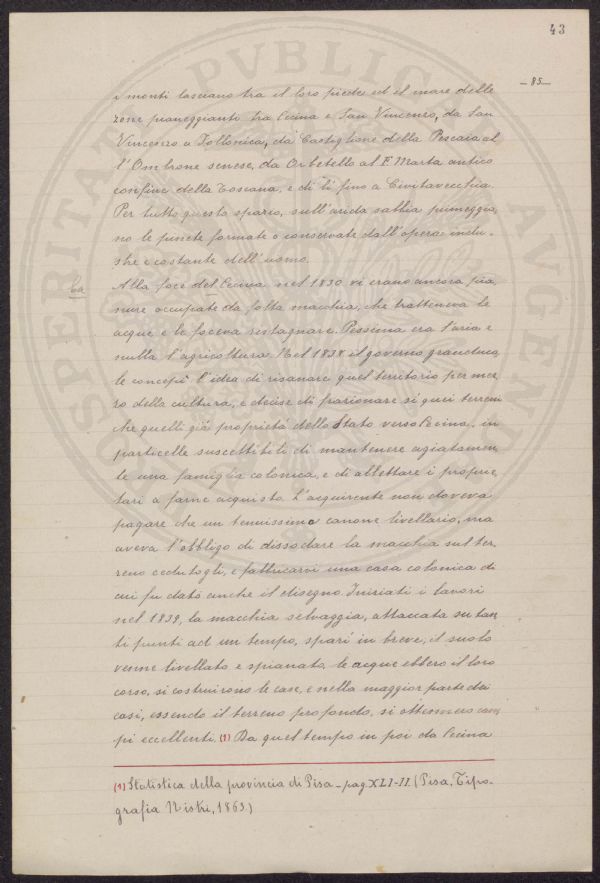 43
— 85 —
i monti lasciano tra il loro piede ed il mare delle
zone pianeggianti tra Cecina e San Vincenzo, da San
Vincenzo a Follonica, da Castiglione della Pescaia al
l'Ombrone senese, da Orbetello al F. Marta antico
confine della Toscana, e di lì fino a Civitavecchia.
Per tutto questo spazio, sull'arida sabbia primeggia,
no le pinete formate o conservate dall'opera indu-
stre e costante dell'uomo.
Alla foce del Cecina nel 1830 vi erano ancora pia,
nure occupate da folta macchia, che tratteneva le
acque e le faceva ristagnare. Pessima era l'aria e
nulla l'agricoltura. Nel 1838 il governo granduca,
le concepì l'idea di risanare quel territorio per mez,
zo della cultura, e decise di frazionare sì quei terreni
che quelli già proprietà dello Stato verso Cecina, in
particelle suscettibili di mantenere agiatamen,
te una famiglia colonica, e di allettare i proprie,
tari a farne acquisto. L'acquirente non doveva
pagare che un tenuissimo canone livellario, ma
aveva l'obbligo di dissodare la macchia sul ter,
reno cedutogli, e fabbricarvi una casa colonica di
cui fu dato anche il disegno. Iniziati i lavori
nel 1839, la macchia selvaggia, attaccata su tan,
ti punti ad un tempo, sparì in breve, il suolo
venne livellato e spianato, le acque ebbero il loro
corso, si costruirono le case, e nella maggior parte dei
casi, essendo il terreno profondo, si ottennero cam,
pi eccellenti. (1) Da quel tempo in poi da Cecina
(1) Statistica della provincia di Pisa - pag. XLI-II. (Pisa, Tipo-
grafia Nistri, 1863.)
PVBLICA
AVGENDAE